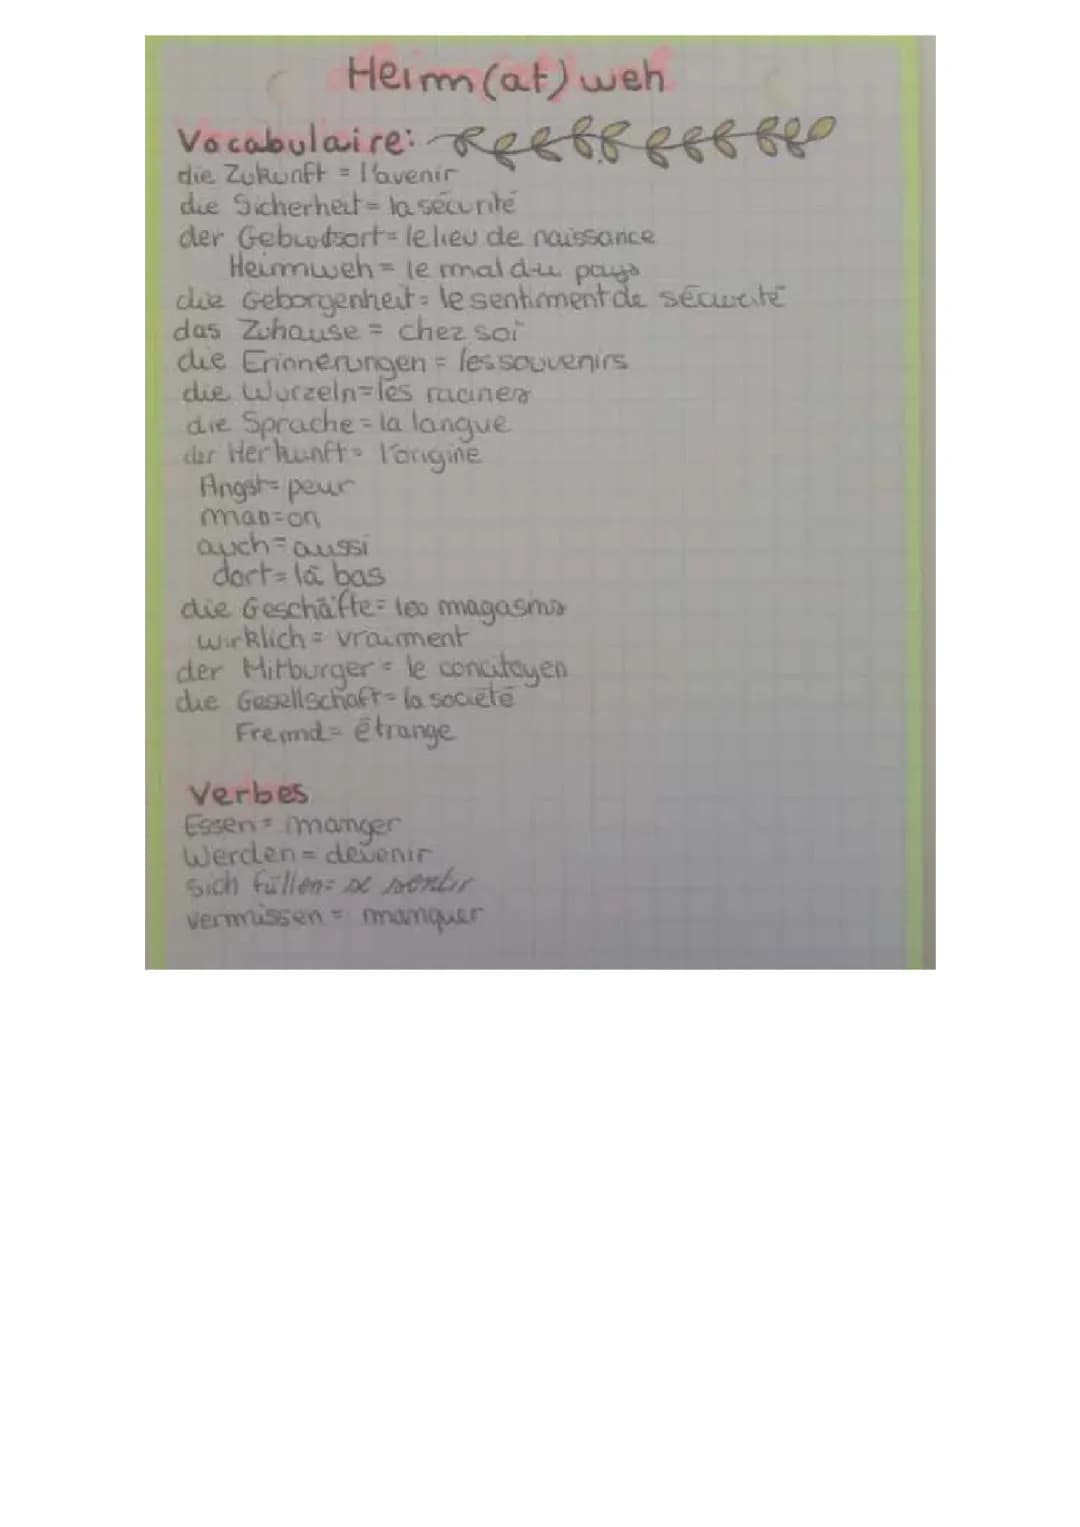 Heim(at)weh
Vocabulaire:
die Zukunft = l'avenir
die Sicherheit = la sécurité
der Geburtsort = le lieu de naissance
Heimweh = le mal du pays
die Geborgenheit = le sentiment de sécurité
das Zuhause = chez soi
die Erinnerungen = les souvenirs
die Wurzeln = les racines
die Sprache = la langue
der Herkunft = l'origine
Angst = peur
man = on
auch = aussi
dort = là bas
die Geschäfte = les magasins
wirklich = vraiment
der Mitburger = le concitoyen
die Gesellschaft = la société
Fremd = étrange
Verbes
Essen = manger
Werden = devenir
Sich füllen = se sentir
vermissen = manquer